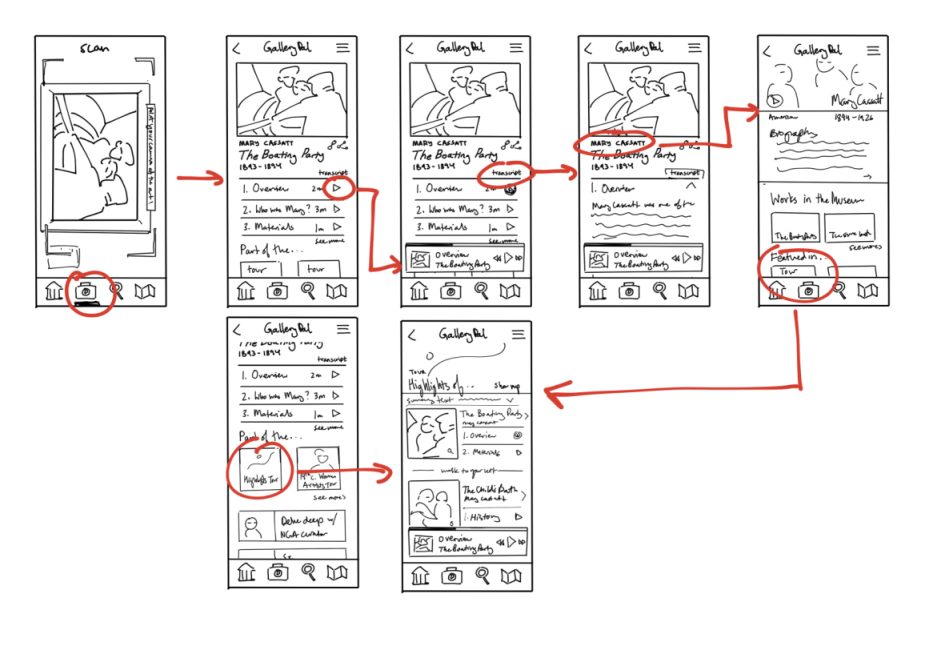 scan
GalleryPal
MARY CASSATT
The Boating Party
1893-1894
transcript
1. Overview 2m
2. Who was Mary? 3m
3. Materials 1m
see more
Part of the...
tour tour
GalleryPal
MARY CASSATT
The Boating Party
1893-1894
transcript
1. Overview
2. Who was Mary? 3m
3. Materials 1m
see more
Overview
The Boating Party
GalleryPal
MARY CASSATT
The Boating Party
1893-1894
transcript
1. Overview
Mary Cassatt was one of the
Overview
The Boating Party
GalleryPal
Mary Cassatt
American 1844-1926
Biography
Works in the Museum
The Boating Party
see more
Featured in..
Tour
GalleryPal
The Boating Party
1893-1894
transcript
1. Overview 2m
2. Who was Mary? 3m
3. Materials 1m
see more
Part of the...
Highlights Tour
Women Artists Tour
see more
Delve deep w/
NGA curator
GalleryPal
TOUR
Highlights of... Show map
summary text
The Boating Party
Mary Cassatt
1. Overview
2. Materials
walk to your left
The Child's Bath
Mary Cassatt
1. History
Overview
The Boating Party